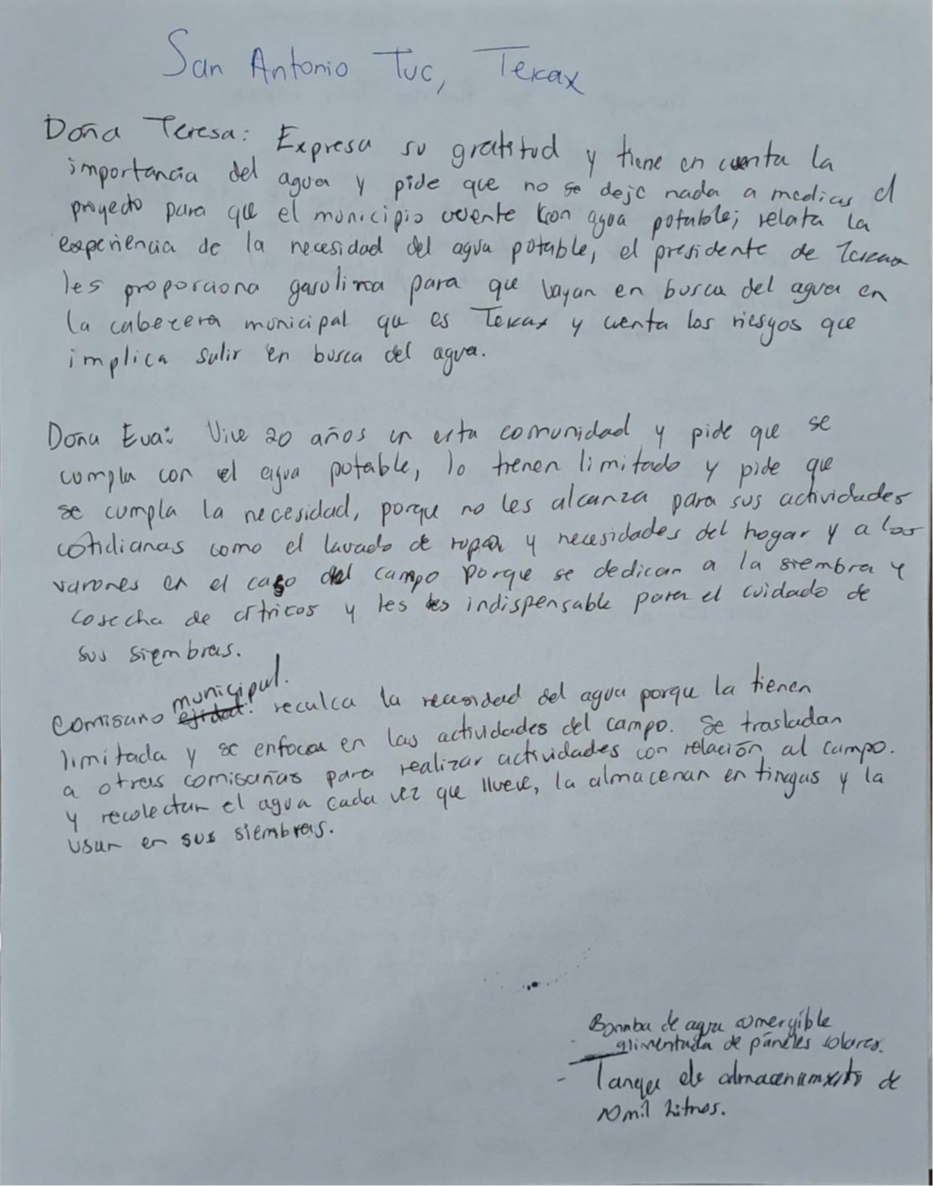 San Antonio Tuc, Tekax
Doña Teresa: Expresa su gratitud y tiene en cuenta la
importancia del agua y pide que no se deje nada a medias el
proyecto para que el municipio cuente con agua potable; relata la
experiencia de la necesidad del agua potable, el presidente de Tekax
les proporciona gasolina para que vayan en busca del agua en
la cabecera municipal que es Tekax y cuenta los riesgos que
implica salir en busca del agua.
Doña Eva: Vive 20 años en esta comunidad y pide que se
cumpla con el agua potable, lo tienen limitado y pide que
se cumpla la necesidad, porque no les alcanza para sus actividades
cotidianas como el lavado de ropa y necesidades del hogar y a los
varones en el caso del campo porque se dedican a la siembra y
cosecha de cítricos y les es indispensable para el cuidado de
sus siembras.
Comisario municipal. reculca la necesidad del agua porque la tienen
limitada y se enfoca en las actividades del campo. Se trasladan
a otras comisarías para realizar actividades con relación al campo.
y recolectan el agua cada vez que llueve, la almacenan en tingas y la
usan en sus siembras.
Bomba de agua sumergible
alimentada de páneles solares.
- Tanque de almacenamiento de
10 mil Litros.